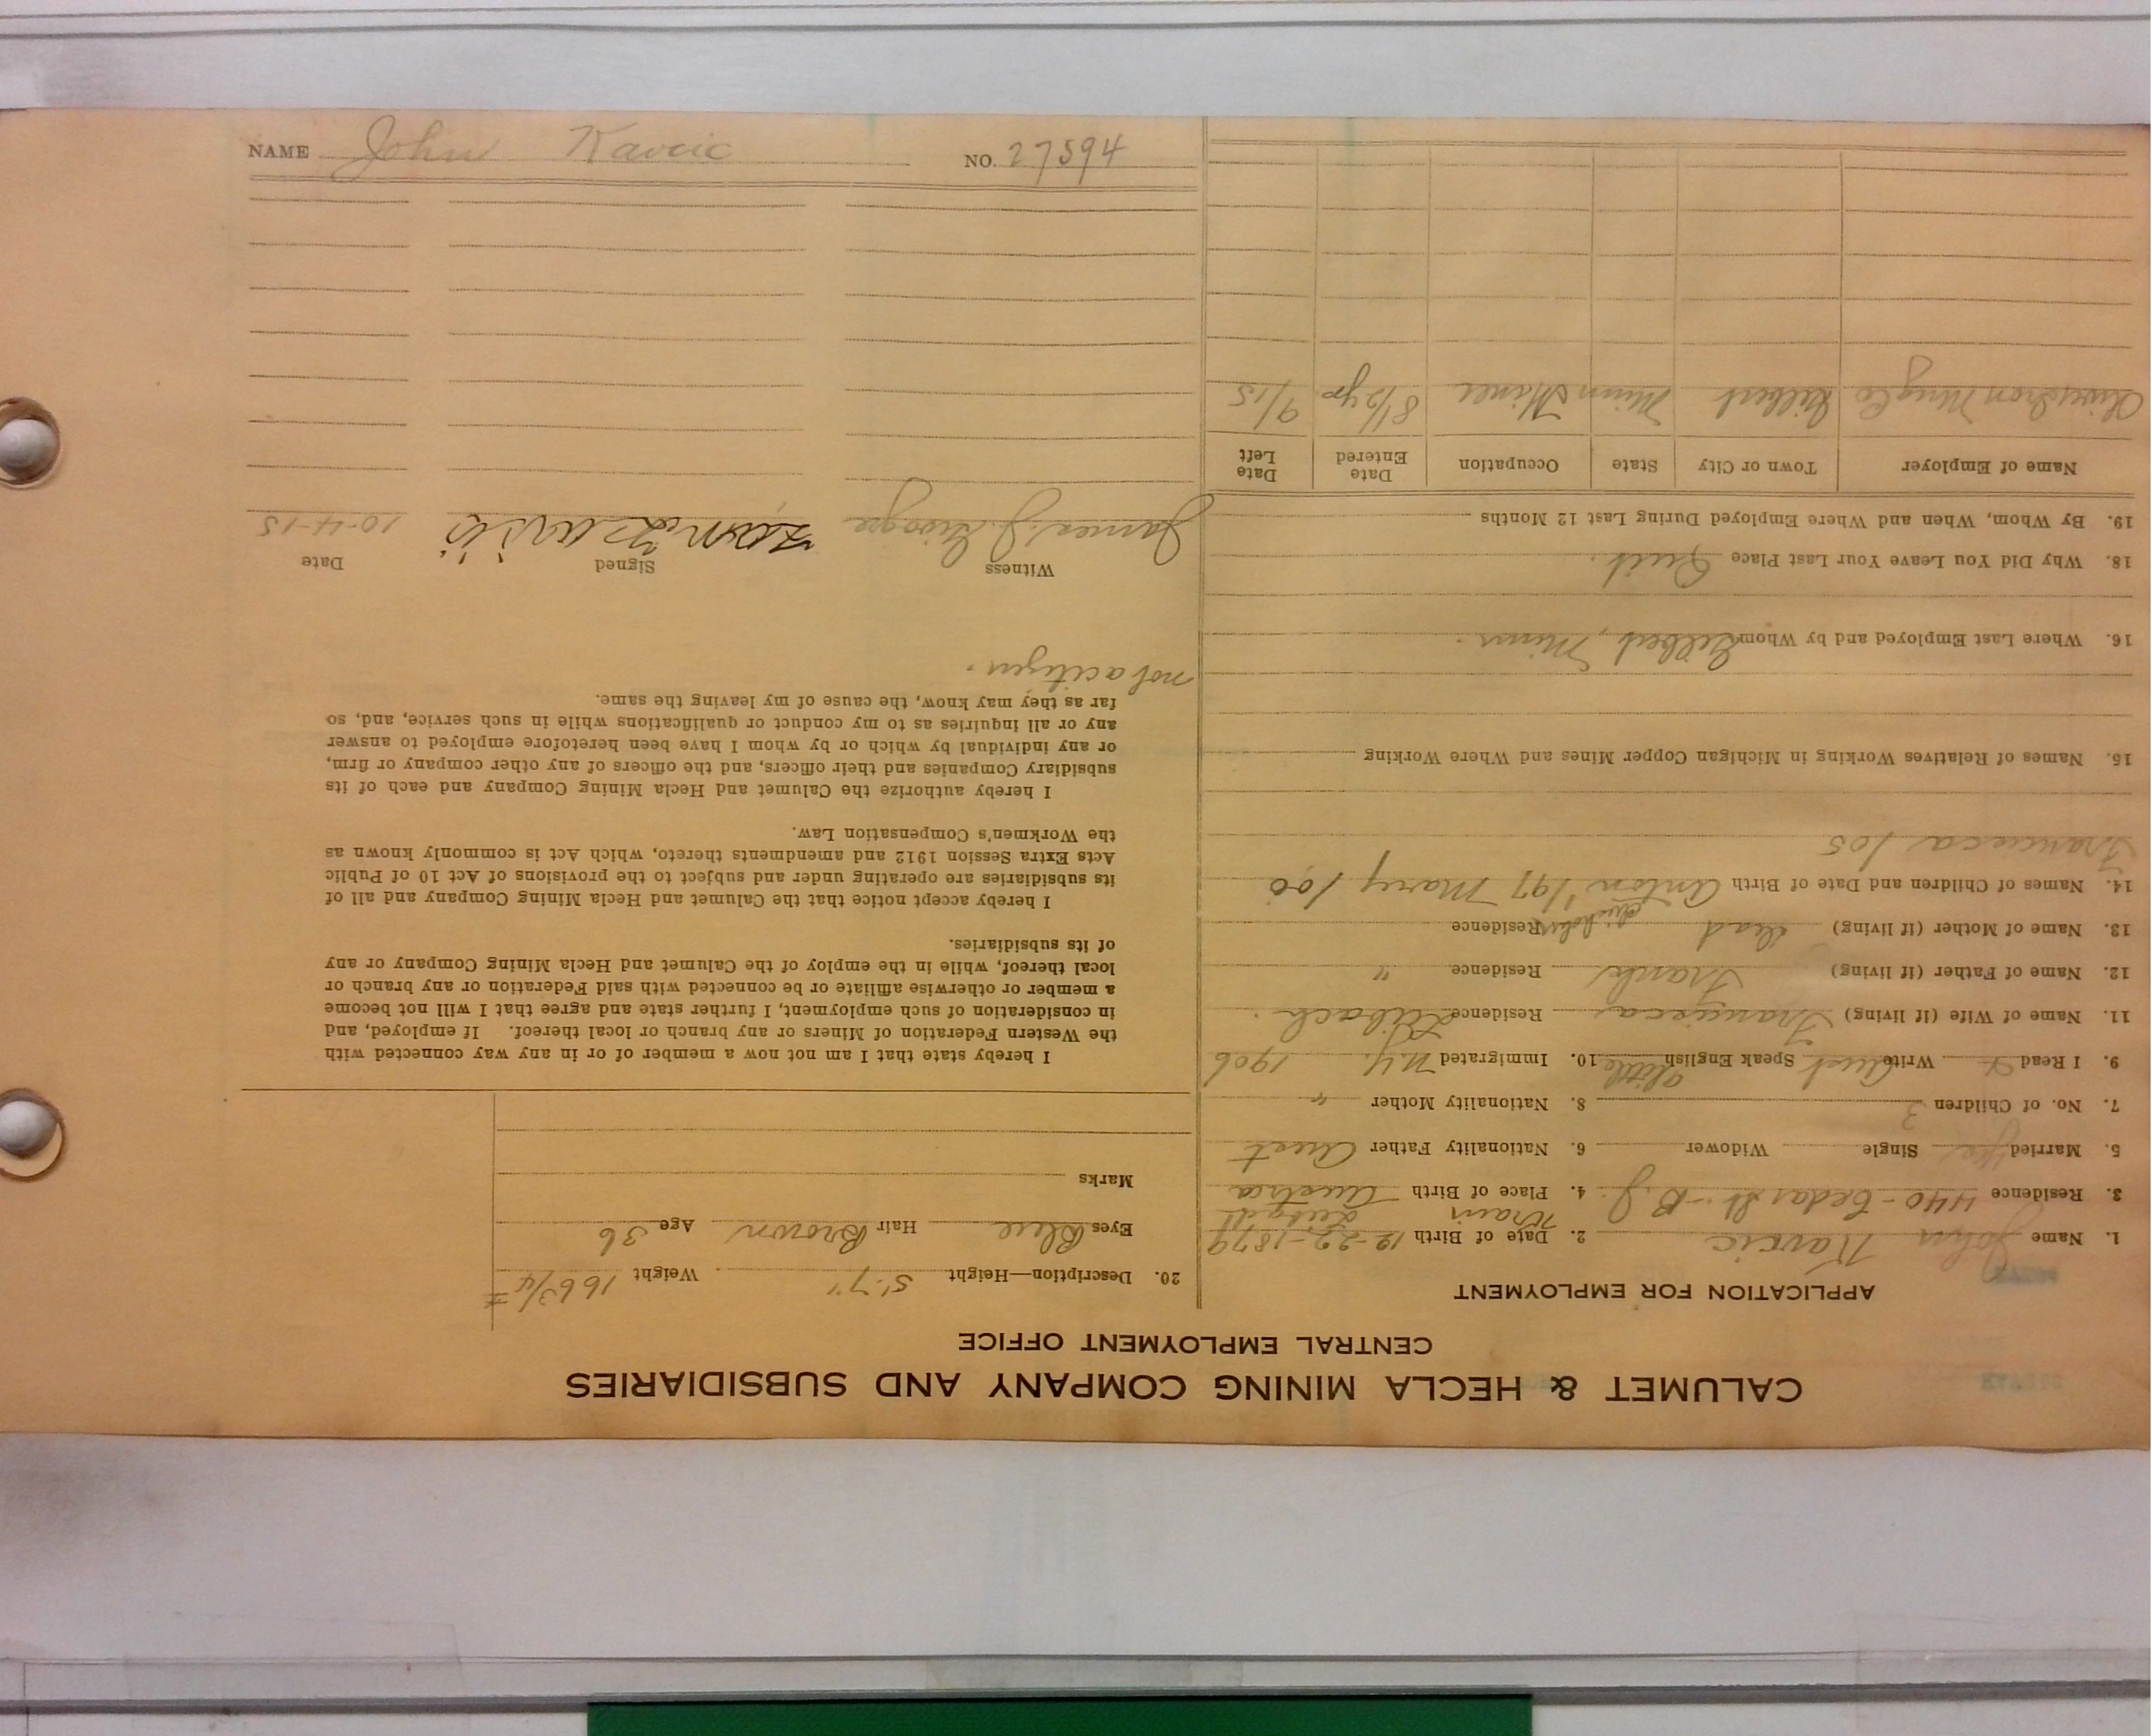 CALUMET & HECLA MINING COMPANY AND SUBSIDIARIES
CENTRAL EMPLOYMENT OFFICE
APPLICATION FOR EMPLOYMENT
1. Name John Kavcic 2. Date of Birth 12-27-1879
Krain
3. Residence 440-Cedar St.-B.J. 4. Place of Birth Austria
5. Married yes Single Widower 6. Nationality Father Aust
7. No. of Children 3 8. Nationality Mother "
9. I Read & Write Aust Speak English little 10. Immigrated N.Y. 1906
11. Name of Wife (if living) Francisca Residence Leibach.
12. Name of Father (if living) Frank Residence "
13. Name of Mother (if living) dead Residence
14. Names of Children and Date of Birth Anton 1/97 Mary /00
Francisca /05
15. Names of Relatives Working in Michigan Copper Mines and Where Working
16. Where Last Employed and by Whom Gilbert, Minn.
18. Why Did You Leave Your Last Place Quit.
19. By Whom, When and Where Employed During Last 12 Months
Name of Employer Town or City State Occupation Date Entered Date Left
Oliver Iron Mng Co Gilbert Minn Miner 8 1/2 yr 9/15
20. Description—Height 5'-7" Weight 166 3/4 #
Eyes Blue Hair Brown Age 36
Marks
I hereby state that I am not now a member of or in any way connected with
the Western Federation of Miners or any branch or local thereof. If employed, and
in consideration of such employment, I further state and agree that I will not become
a member or otherwise affiliate or be connected with said Federation or any branch or
local thereof, while in the employ of the Calumet and Hecla Mining Company or any
of its subsidiaries.
I hereby accept notice that the Calumet and Hecla Mining Company and all of
its subsidiaries are operating under and subject to the provisions of Act 10 of Public
Acts Extra Session 1912 and amendments thereto, which Act is commonly known as
the Workmen's Compensation Law.
I hereby authorize the Calumet and Hecla Mining Company and each of its
subsidiary Companies and their officers, and the officers of any other company or firm,
or any individual by which or by whom I have been heretofore employed to answer
any or all inquiries as to my conduct or qualifications while in such service, and, so
far as they may know, the cause of my leaving the same.
not a citizen.
Witness Signed Date
James J. 10-4-15
NAME John Kavcic NO. 27594